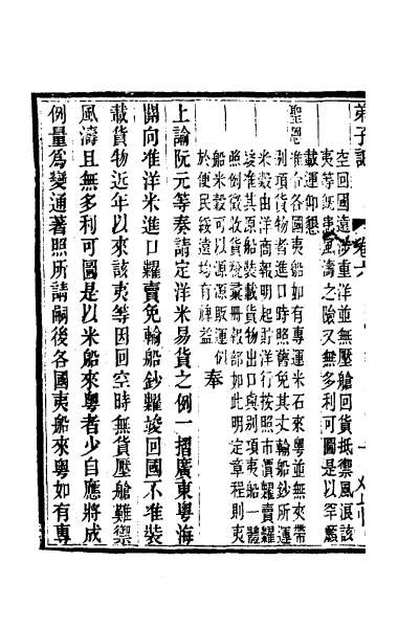 弟子記 卷六
空回國遠涉重洋並無壓艙回貨抵禦風浪該
夷等旣患風濤之險又無多利可圖是以罕願
載運仰懇
聖恩准合各國夷船如有專運米石來粵並無夾帶
別項貨物者進口時照舊免其丈輸船鈔所運
米穀由洋商報明起貯洋行按照市價糶賣糶
竣准其原船裝載貨物出口與別項夷船一體
照例徵收貨稅彙冊報部如此明定章程則夷
船米穀可以源源販運似
於便民綏遠均有裨益 奉
上諭阮元等奏請定洋米易貨之例一摺廣東粵海
關向准洋米進口糶賣免輸船鈔糶竣回國不准裝
載貨物近年以來該夷等因回空時無貨壓艙難禦
風濤且無多利可圖是以米船來粵者少自應將成
例量爲變通著照所請嗣後各國夷船來粵如有專